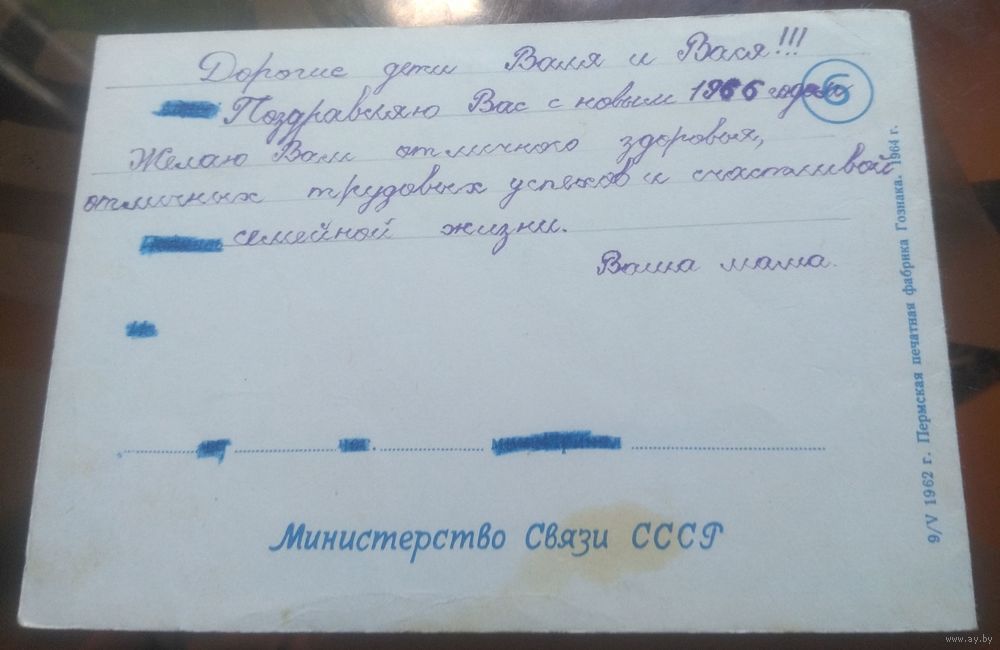 Дорогие дети Валя и Вася!!!
Поздравляю Вас с новым 1966 годом
6
Желаю Вам отличного здоровья,
отличных трудовых успехов и счастливой
семейной жизни.
Ваша мама.
Министерство Связи СССР
9/V 1962 г. Пермская печатная фабрика Гознака. 1964 г.
www.ay.by